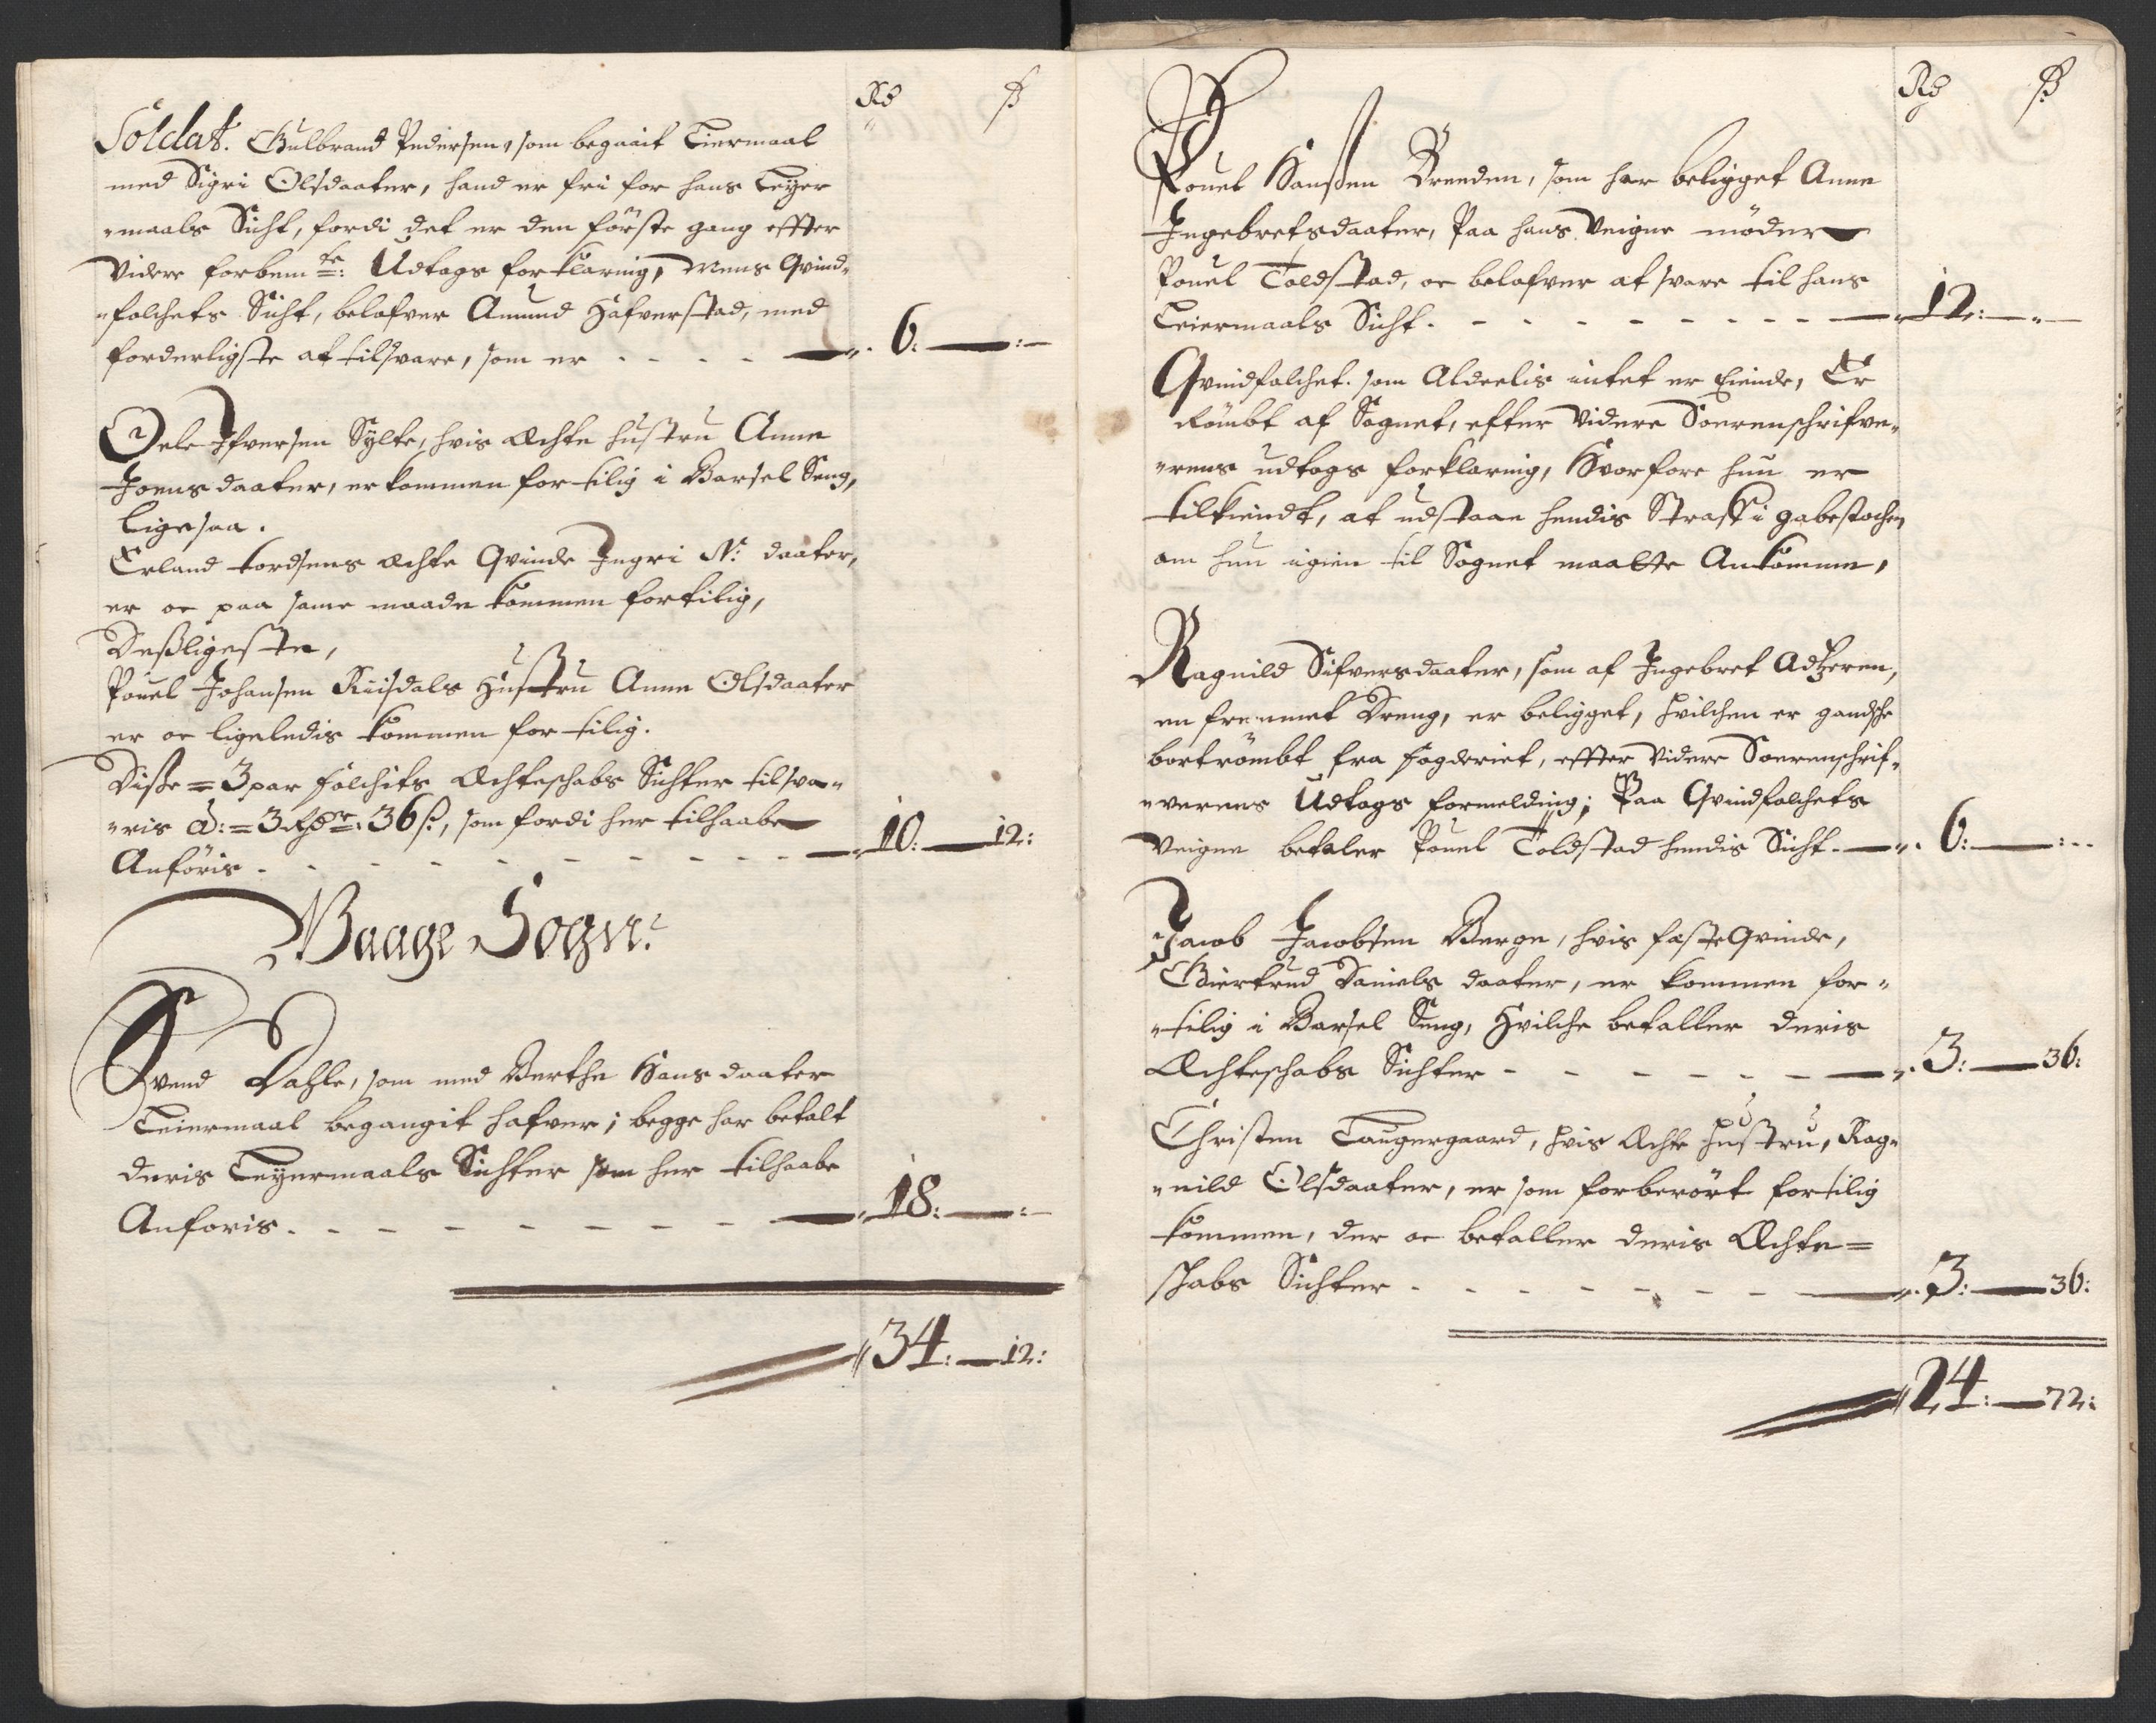 Rd ß
Soldat. Gulbrand Pedersen, som begaait Leiermaal
med Sigri Olsdaater, hand er fri for hans Leyer
"maals Sicht, fordi det er den förste gang effter
Videre forbemte: Udtogs forklaring, mens Qvind„
"folchets Sicht, belofver Amund Hafverstad, med
forderligste at tilsvare, som er - - - - 6: — : —
Oele Ifversen Sylte, hvis Æchte hustru Anne
Joensdaater, er kommen for tilig i Barsel Seng,
Ligesaa.
Erland tordsens Æchte Qvinde Ingri N: daater,
er oc paa same maade kommen fortilig,
Desßligeste,
Pouel Johansen Riisdals Hustru Anne Olsdaater
er oc ligeledis kommen for tilig.
Disße = 3 par folchits Æchteschabs Sichter tilsva„
"ris â: = 3 Rdr: 36 ß., som fordi her tilhaabe
Anföris - - - - - - - - - 10: — 12:
Vaage Sogn:
Svend Dahle, som med Berthe Hansdaater
Leiermaal begangit hafver; begge har betalt
deris Leyermaals Sichter som her tilhaabe
Anföris - - - - - - - - 18: — : —
34: — 12:
Rd ß
Pouel Hanßen Breeden, som har beligget Anne
Ingebretsdaater, Paa hans Veigne möder
Pouel Toldstad, oc belofver at svare til hans
Leiermaals Sicht. - - - - - - - - 12: — „ —
Qvindfolchet som Aldeelis intet er Eiende, Er
Römbt af Sognet, efter Videre Soerenschrifve„
"rens udtogs forklaring, Hvorfore hun er
tilkiendt, at udstaae hendis Straff i gabestochen
om hun igien til Sognet maatte Ankomme,
Ragnild Sifversdaater, som af Ingebret Adzeren,
en fremmet Dreng, er beligget, hvilchen er gandsche
bortrömbt fra fogderiet, effter Videre Soerenschrif„
"verens Udtogs formelding; Paa Qvindfolchets
Veigne betaler Pouel Toldstad hendis Sicht. — 6: — : - -
Jacob Jacobsen Berge, hvis fæste Qvinde,
Giertrud Daniels daater, er kommen for„
"tilig i Barsel Seng, Hvilche betaller deris
Æchteschabs Sichter - - - - - - 3: — 36:
Christen Laugergaard, hvis Æchte hustru, Rag„
"nild Olsdaater, er som forberört fortilig
kommen, der oc betaller deris Æchte=
schabs Sichter - - - - - - - 3: — 36:
24: — 72: